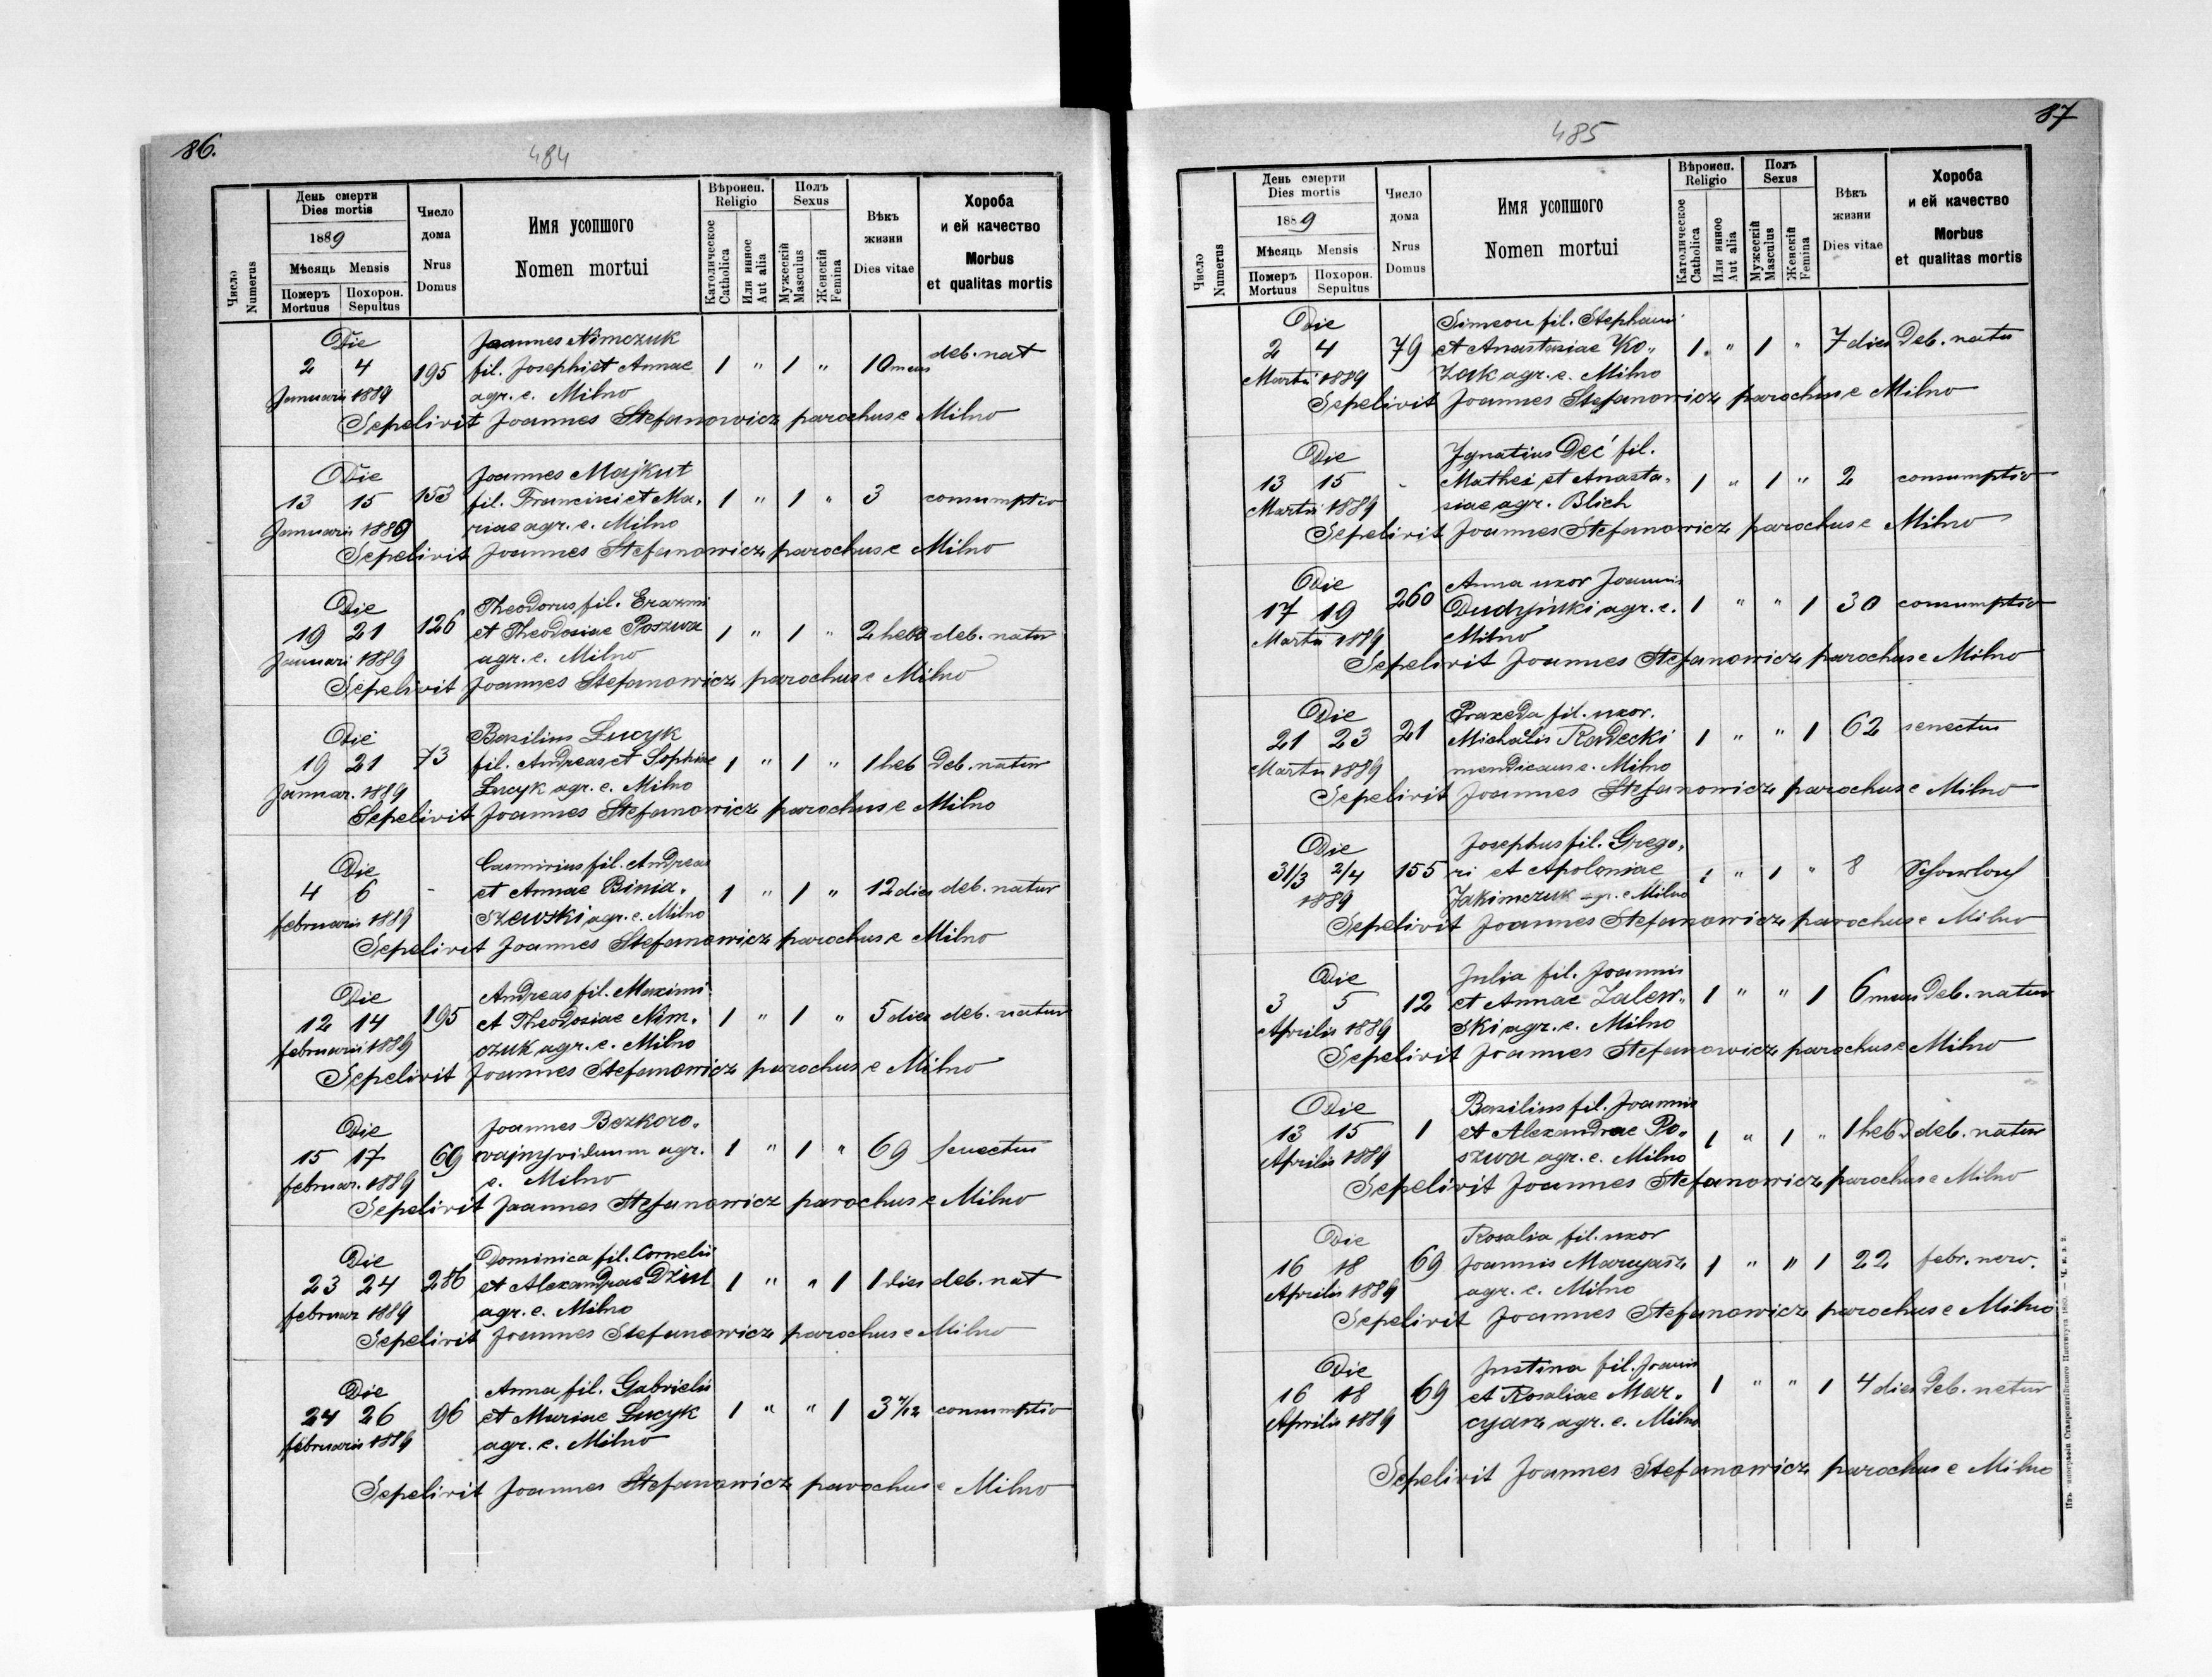 86.
484
Число
Numerus
День смерти
Dies mortis
1889
Мѣсяць Mensis
Померъ Похорон.
Mortuus Sepultus
Число
дома
Nrus
Domus
Имя усопшого
Nomen mortui
Вѣроисп.
Religio
Католическое
Catholica
Или инное
Aut alia
Полъ
Sexus
Мужескій
Masculus
Женскій
Femina
Вѣкъ
жизни
Dies vitae
Хороба
и ей качество
Morbus
et qualitas mortis
Die Joannes Nimczuk
2 4 195 fil. Josephi et Annae 1 " 1 " 10 mens deb. nat
Januarii 1889 agr. e. Milno
Sepelivit Joannes Stefanowicz parochus e Milno
Die Joannes Majkut
13 15 153 fil. Francisci et Ma„ 1 " 1 " 3 consumptio
Januarii 1889 riae agr. e. Milno
Sepelivit Joannes Stefanowicz parochus e Milno
Die Theodorus fil. Erazmi
19 21 126 et Theodosiae Poszwa 1 " 1 " 2 hebd deb. natur
Januari 1889 agr. e. Milno
Sepelivit Joannes Stefanowicz parochus e Milno
Die Basilius Lucyk
19 21 73 fil. Andreas et Sophiae 1 " 1 " 1 heb Deb. natur
Januar. 1889 Lucyk agr. e. Milno
Sepelivit Joannes Stefanowicz parochus e Milno
Die Casmirius fil. Andreas
4 6 - et Annae Binia„ 1 " 1 " 12 dies deb. natur
februarii 1889 szewski agr. e. Milno
Sepelivit Joannes Stefanowicz parochus e Milno
Die Andreas fil. Maximi
12 14 195 et Theodosiae Nim„ 1 " 1 " 5 dies deb. natur
februarii 1889 czuk agr. e. Milno
Sepelivit Joannes Stefanowicz parochus e Milno
Die Joannes Bezkoro„
15 17 69 wajny viduum agr. 1 " 1 " 69 senectus
februar. 1889 e. Milno
Sepelivit Joannes Stefanowicz parochus e Milno
Die Dominica fil. Cornelii
23 24 286 et Alexandrae Dziul 1 " " 1 1 dies deb. nat
februar 1889 agr. e. Milno
Sepelivit Joannes Stefanowicz parochus e Milno
Die Anna fil. Gabrielis
24 26 96 et Mariae Lucyk 1 " " 1 3 /12 consumptio
februarii 1889 agr. e. Milno
Sepelivit Joannes Stefanowicz parochus e Milno
87
485
Число
Numerus
День смерти
Dies mortis
1889
Мѣсяць Mensis
Померъ Похорон.
Mortuus Sepultus
Число
дома
Nrus
Domus
Имя усопшого
Nomen mortui
Вѣроисп.
Religio
Католическое
Catholica
Или инное
Aut alia
Полъ
Sexus
Мужескій
Masculus
Женскій
Femina
Вѣкъ
жизни
Dies vitae
Хороба
и ей качество
Morbus
et qualitas mortis
Die Simeon fil. Stephani
2 4 79 et Anastasiae Ko„ 1 " 1 " 7 dies Deb. natu
Martii 1889 zak agr. e. Milno
Sepelivit Joannes Stefanowicz parochus e Milno
Die Ignatius Deć fil.
13 15 - Mathei et Anasta„ 1 " 1 " 2 consumptio
Martii 1889 siae agr. Blich
Sepelivit Joannes Stefanowicz parochus e Milno
Die Anna uxor Joannis
17 19 260 Dudzinski agr. e. 1 " " 1 30 consumptio
Martii 1889 Milno
Sepelivit Joannes Stefanowicz parochus e Milno
Die Praxeda fil. uxor.
21 23 21 Michaelis Radecki 1 " " 1 62 senectus
Martii 1889 mendicans e. Milno
Sepelivit Joannes Stefanowicz parochus e Milno
Die Josephus fil. Grego„
31/3 2/4 155 ri et Apoloniae 1 " 1 " 8
1889 Jakimczuk agr. e Milno
Sepelivit Joannes Stefanowicz parochus e Milno
Die Julia fil. Joannis
3 5 12 et Annae Zalew„ 1 " " 1 6 mens Deb. natur
Aprilis 1889 ski agr. e. Milno
Sepelivit Joannes Stefanowicz parochus e Milno
Die Basilius fil. Joannis
13 15 1 et Alexandrae Po„ 1 " 1 " 1 hebd deb. natur
Aprilis 1889 szwa agr. e. Milno
Sepelivit Joannes Stefanowicz parochus e Milno
Die Rosalia fil. uxor
16 18 69 Joannis Marcyasz 1 " " 1 22 febr. nerv.
Aprilis 1889 agr. e. Milno
Sepelivit Joannes Stefanowicz parochus e Milno
Die Justina fil. Joannis
16 18 69 et Rosaliae Mar„ 1 " " 1 4 dies Deb. natur
Aprilis 1889 cyasz agr. e. Milno
Sepelivit Joannes Stefanowicz parochus e Milno